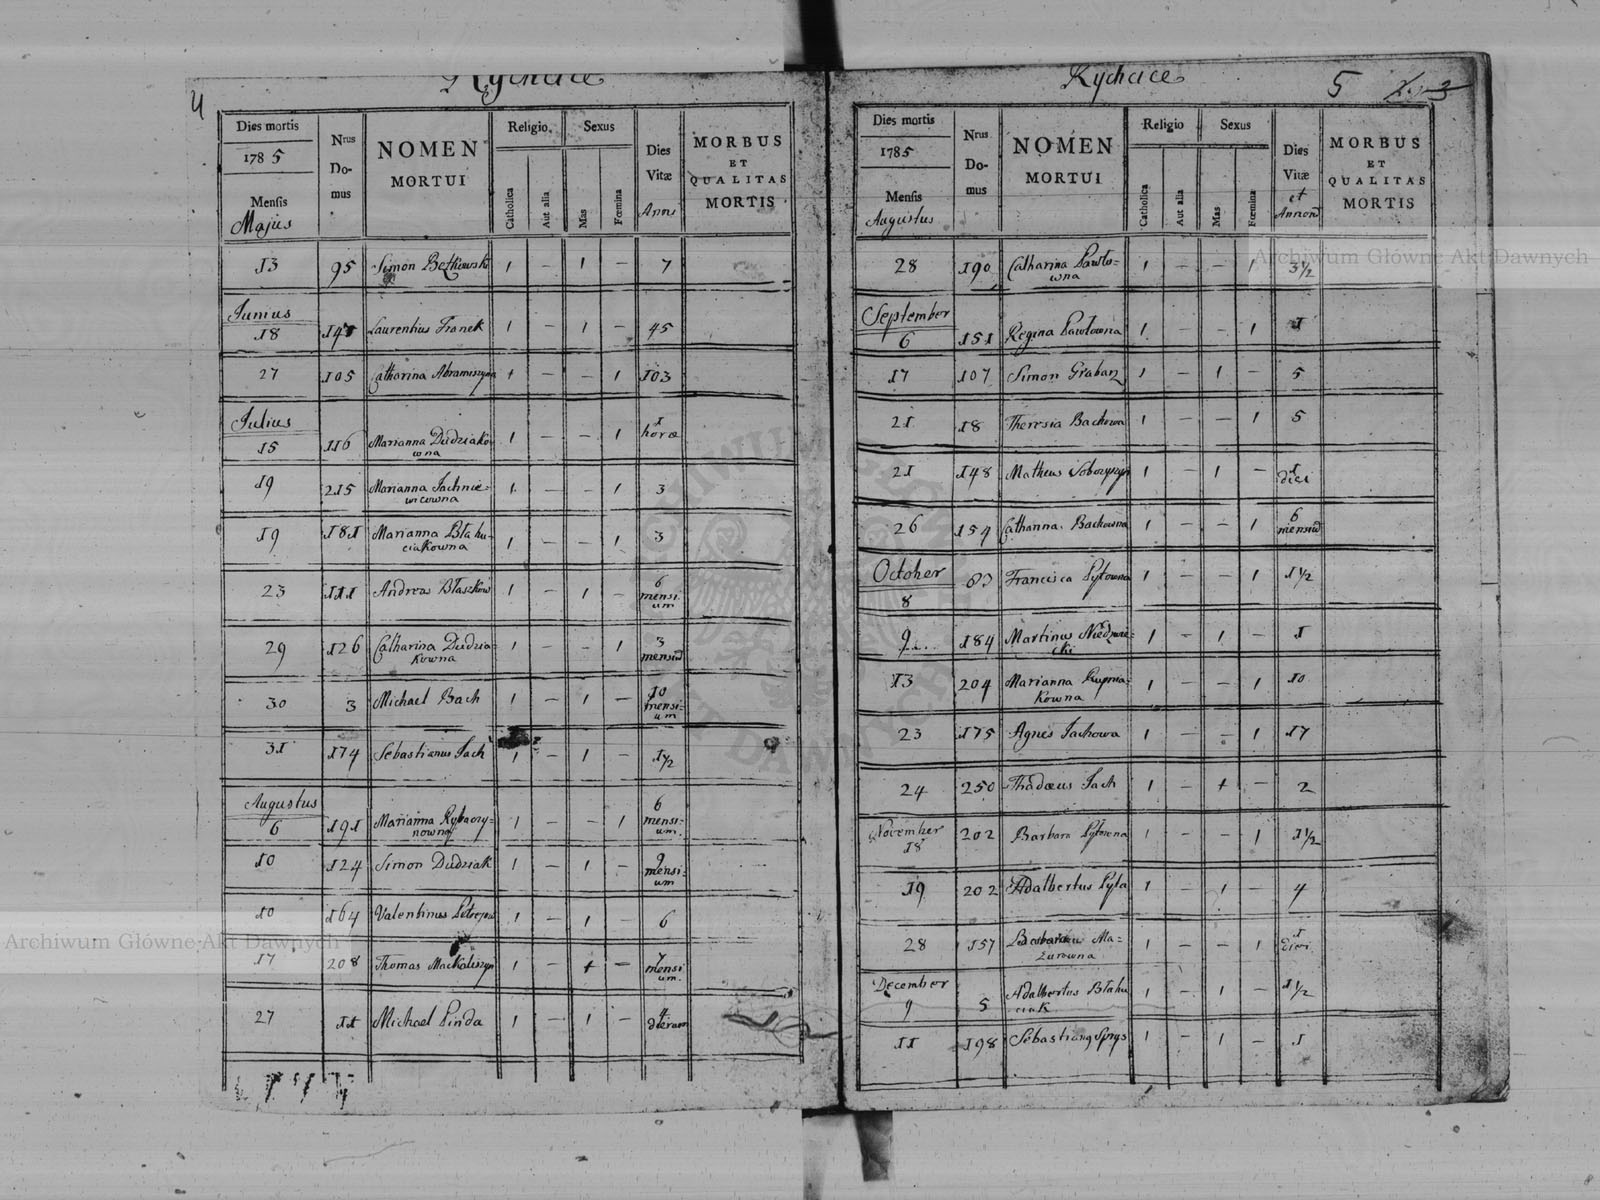 4
Rychcice
Dies mortis
1785
Mensis
Majus
Nrus
Do-
mus
NOMEN
MORTUI
Religio
Catholica
Aut alia
Sexus
Mas
Fœmina
Dies
Vitæ
Anni
MORBUS
ET
QUALITAS
MORTIS
13 95 Simon 1 – 1 – 7
Junius
18 Laurentius Franek 1 – 1 – 45
27 105 Catharina Abramiszyna 1 – – 1 103
Julius
15 116 Marianna Dudziako- 1 – – 1 1 horæ
wna
19 215 Marianna Jachnie- 1 – – 1 3
wicowna
19 181 Marianna Błahu- 1 – – 1 3
ciakowna
23 111 Andreas Błaszkow 1 – 1 – 6
mensi-
um
29 126 Catharina Dudzia- 1 – – 1 3
kowna mensiū
30 3 Michael Bach 1 – 1 – 10
mensi-
um
31 174 Sebastianus Jach 1 – 1 – 1½
Augustus
6 191 Marianna Rybaczy- 1 – – 1 6
nowna mensi-
um.
10 124 Simon Dudziak 1 – 1 – 9
mensi-
um
10 164 Valentinus 1 – 1 – 6
17 208 Thomas 1 – 1 – 7
mensi
um.
27 11 Michael Pinda 1 – 1 – 4
dierum
Rychcice
5
Dies mortis
1785
Mensis
Augustus
Nrus
Do-
mus
NOMEN
MORTUI
Religio
Catholica
Aut alia
Sexus
Mas
Fœmina
Dies
Vitæ
et
Annorū
MORBUS
ET
QUALITAS
MORTIS
28 190 Catharina Pawło- 1 – – 1 3½
wna
September
6 151 Regina Pawłowna 1 – – 1 1
17 107 Simon Grabarz 1 – 1 – 5
21 18 Theresia Bachowa 1 – – 1 5
21 148 Matheus 1 – 1 – 1
diei
26 154 Catharina Bachowna 1 – – 1 6
mensiū
October
8 Francisca Pyłowna 1 – – 1 1½
9 184 Martinus Niedzwie- 1 – 1 – 1
cki
13 204 Marianna Kupnia- 1 – – 1 10
kowna
23 175 Agnes Jachowa 1 – – 1 17
24 250 Thadæus Jach 1 – 1 – 2
November
18 202 Barbara Pyłowna 1 – – 1 1½
19 202 Adalbertus Pyła 1 – 1 – 4
28 157 Ma- 1 – – 1 1
zurowna diei
December
9 5 Adalbertus Błahu 1 – 1 – 1½
ciak
11 198 Sebastianus 1 – 1 – 1
Archiwum Główne Akt Dawnych
Archiwum Główne Akt Dawnych
ARCHIWUM GŁÓWNE AKT DAWNYCH